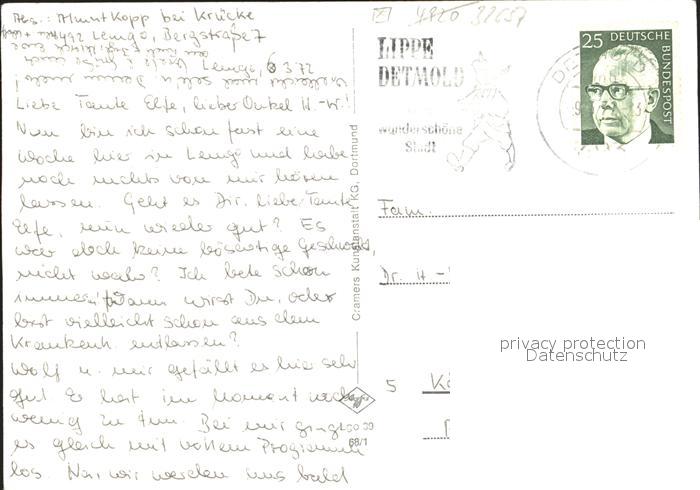 Abs.: Almut Kopp bei Krücke
492 Lemgo, Bergstraße 7
Lemgo, 6 3 72
Liebe Tante Elfe, lieber Onkel H.-W.!
Nun bin ich schon fast eine
Woche hier in Lemgo und habe
noch nichts von mir hören
lassen. Geht es Dir, liebe Tante
Elfe, nun wieder gut? Es
war doch keine bösartige Geschwulst,
nicht wahr? Ich bete schon
immer! Wann wirst Du, oder
bist vielleicht schon aus dem
Krankenh. entlassen?
Wolf u. mir gefällt es hier sehr
gut. Er hat im Moment noch
wenig zu tun. Bei mir ging
es gleich mit vollem Programm
los. Na, wir werden uns bald
Cramers Kunstanstalt KG, Dortmund
68/1
4920
LIPPE
DETMOLD
wunderschöne
Stadt
25 DEUTSCHE
BUNDESPOST
Fam.
Dr. H -
5 Kö
privacy protection
Datenschutz